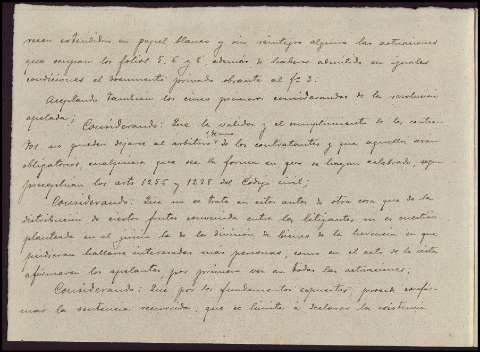 recen extendidas en papel blanco y sin reintegro alguno las actuaciones
que ocupan los folios 5, 6 y 8, además de haberse admitido en iguales
condiciones el documento privado obrante al fº 2:
Aceptando también los cinco primeros considerandos de la resolución
apelada;
Considerando: Que la validez y el cumplimiento de los contra-
tos no pueden dejarse al arbitrio de uno de los contratantes y que aquellos son
obligatorios, cualquiera que sea la forma en que se hayan celebrado, segun
preceptúan los arts 1256 y 1278 del Código civil;
Considerando: Que no se trata en estos autos de otra cosa que de la
distribución de ciertos frutos convenida entre los litigantes no es cuestión
planteada en el juicio la de la división de bienes de la herencia en que
pudieran hallarse interesadas más personas, como en el acto de la vista
afirmaron los apelantes, por primera vez en todas las actuaciones;
Considerando: Que por los fundamentos expuestos procede confir-
mar la sentencia recurrida, que se limita á declarar la existencia